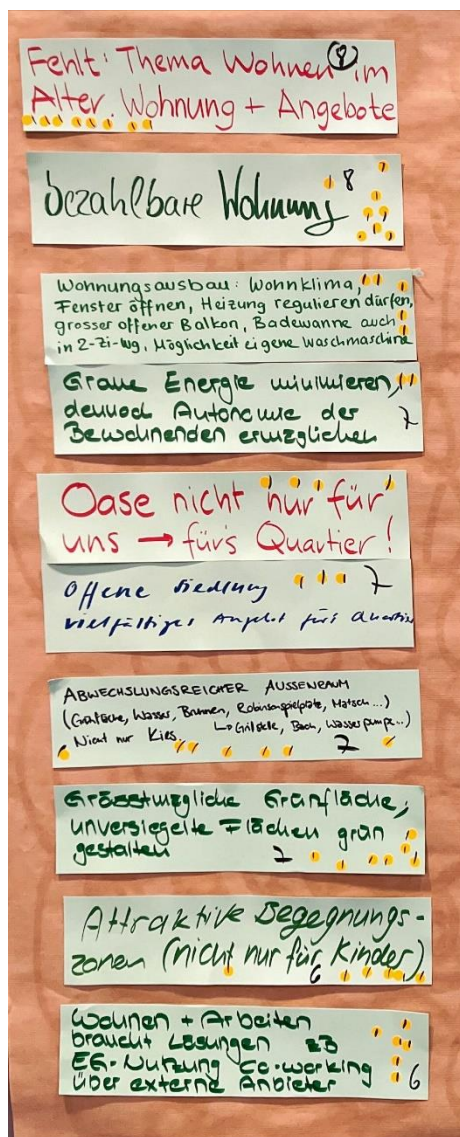 Fehlt: Thema Wohnen 9 im
Alter. Wohnung + Angebote
bezahlbare Wohnung 8
Wohnungsausbau: Wohnklima,
Fenster öffnen, Heizung regulieren dürfen,
grosser offener Balkon, Badewanne auch
in 2-Zi-Wg, Möglichkeit eigene Waschmaschine
Graue Energie minimieren,
dennoch Autonomie der 7
Bewohnenden ermöglichen
Oase nicht nur für
uns → für's Quartier!
Offene Siedlung 7
vielfältiges Angebot für's Quartier
ABWECHSLUNGSREICHER AUSSENRAUM
(Grünfläche, Wasser, Brunnen, Robinsonspielplatz, Matsch...)
Nicht nur Kies. ↳ Grillstelle, Bach, Wasserpumpe...)
7
Grösstmögliche Grünfläche,
unversiegelte Flächen grün
gestalten 7
Attraktive Begegnungs-
zonen (nicht nur für Kinder)
6
Wohnen + Arbeiten
braucht Lösungen zB
EG-Nutzung Co-working
über externe Anbieter 6